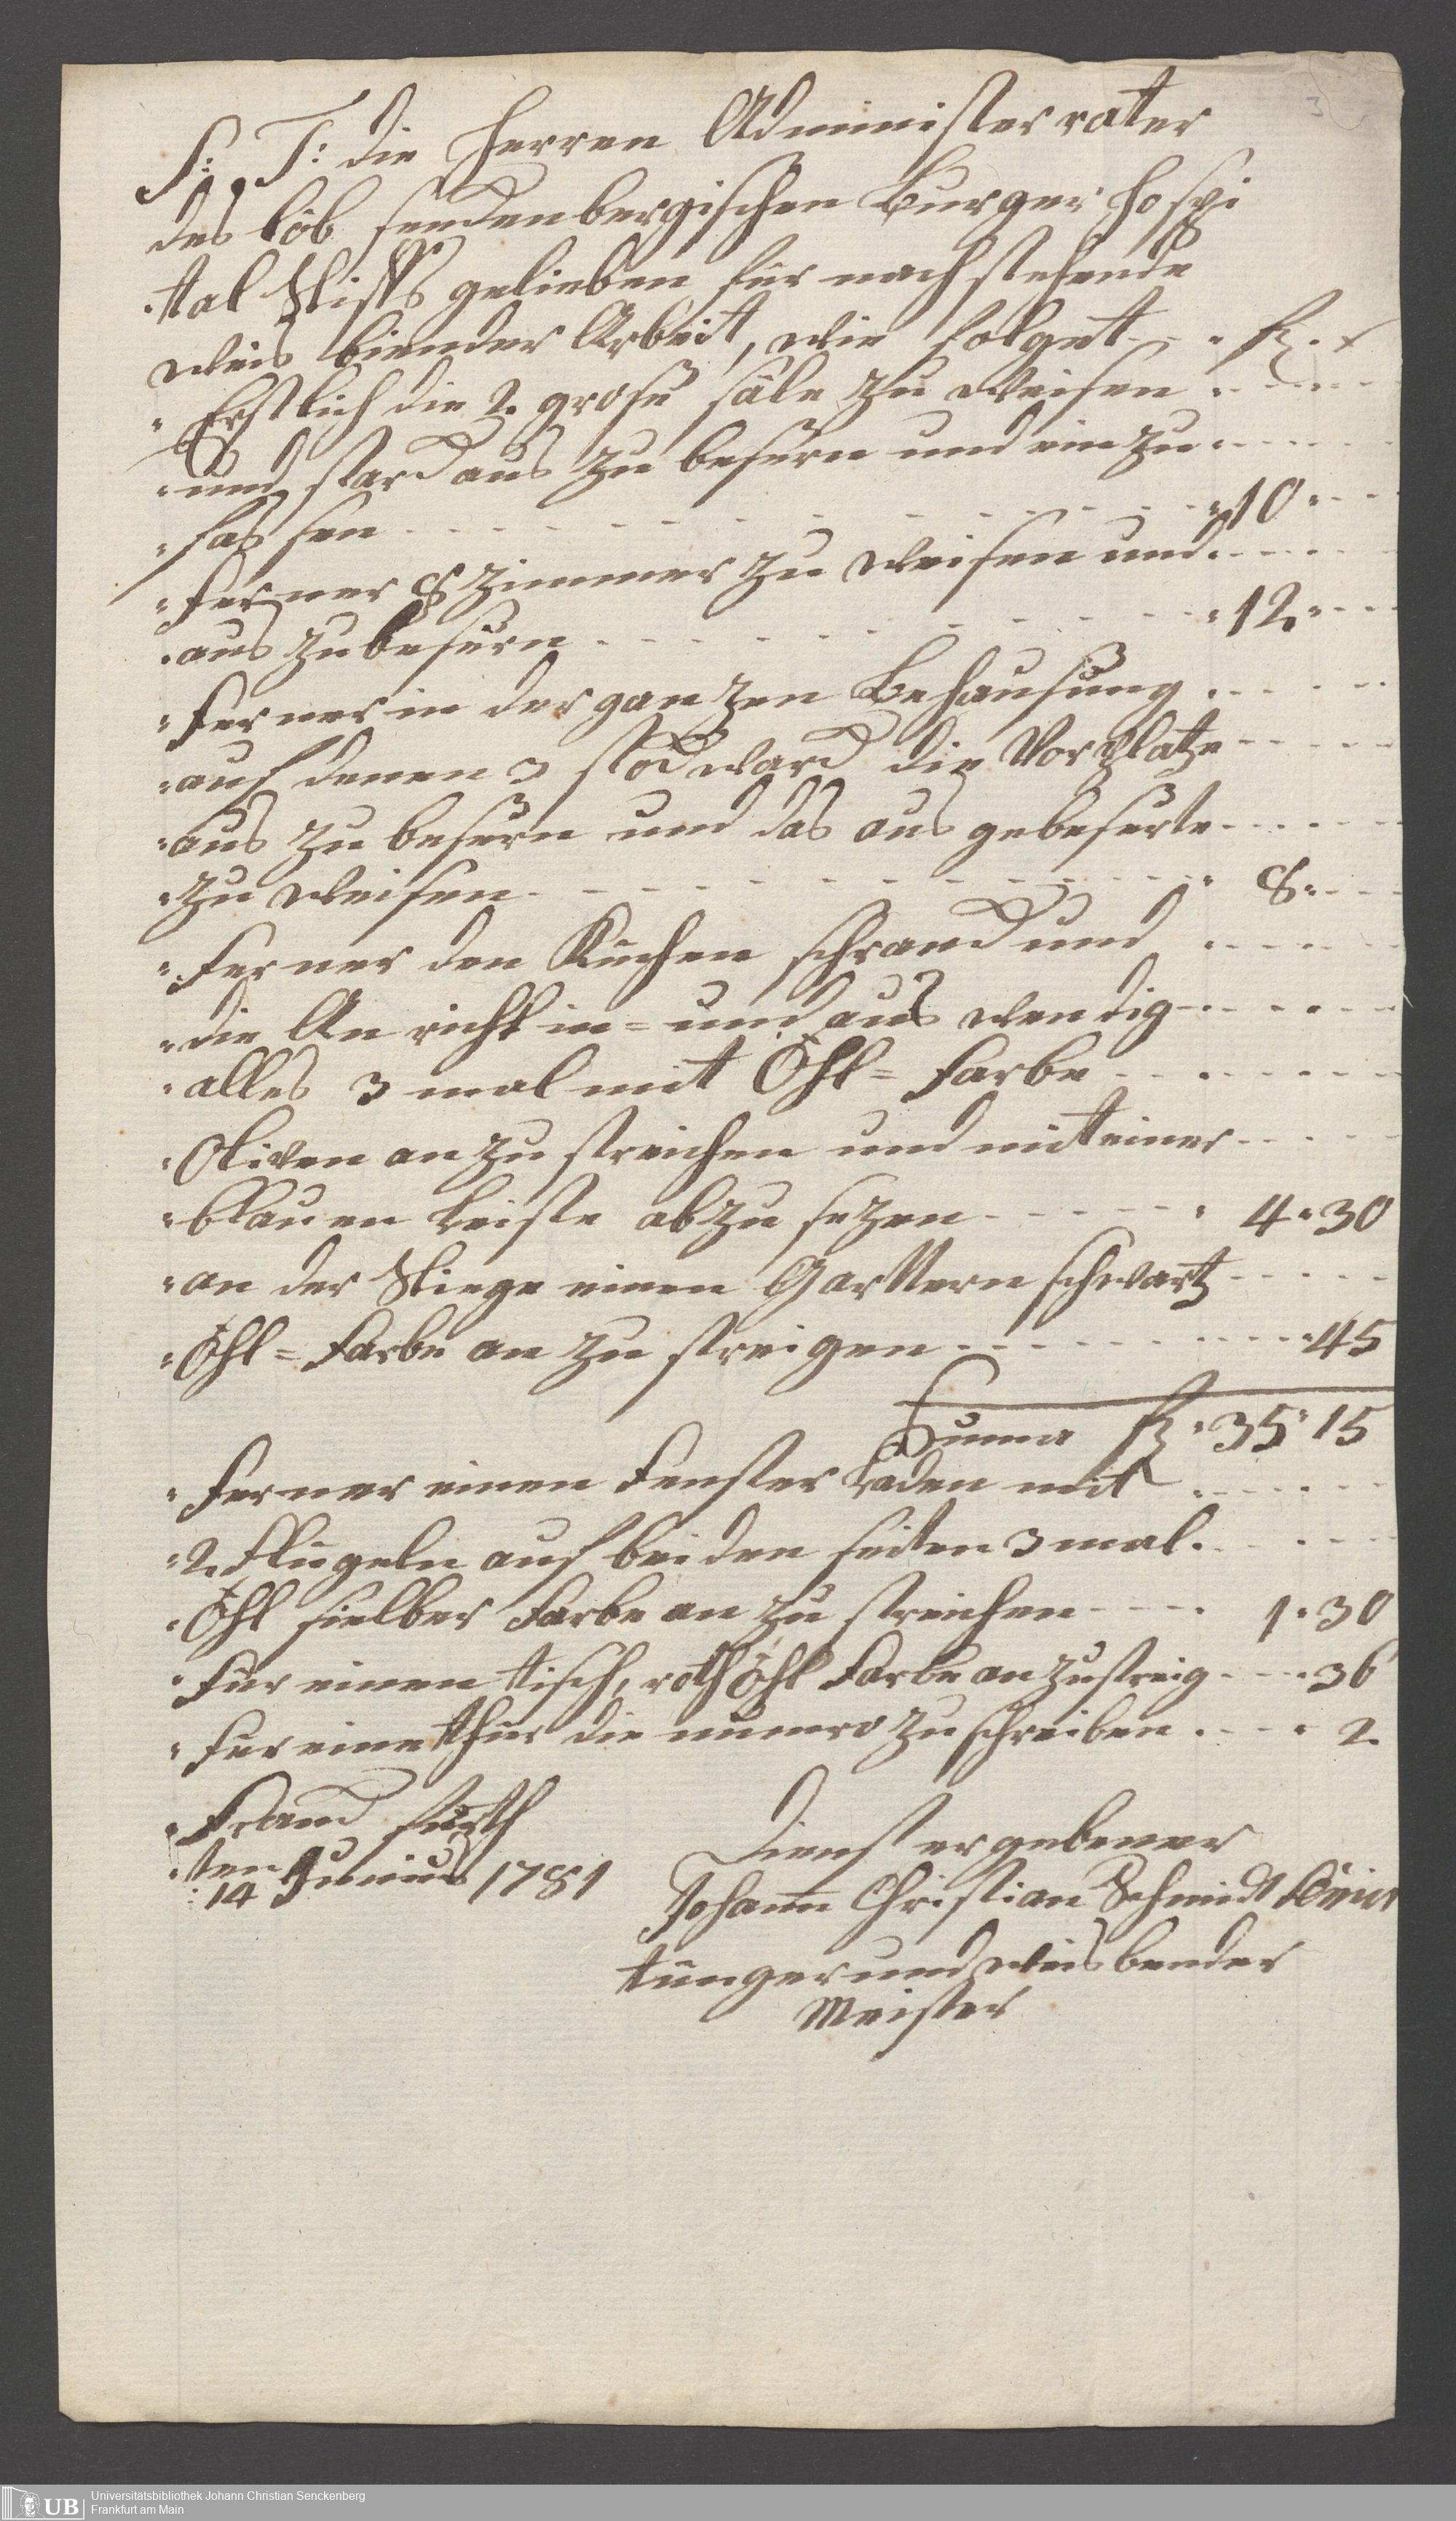 S: T: die Herren Administerrater
des löb senckenbergischen Burger hospi
tal Stiffts gelieben für nachstehende
weis biender Arbeit, wie folget - - . fl. x
Erstlich die 2. grose säle zu weisen
und starck aus zu besern und ein zu
fas sen - - - 10
ferner 8 zimmer zu weisen und
aus zu besern - - - 12
ferner in der ganzen Behausung
auf denen 3 stockwarck die Vorplatze
aus zu besern und das aus gebeserte
zu weisen - - - 8
ferner den Kuchen schranck und
die An richt in= und aus wendig
alles 3 mal mit Öhl= farbe
Oliven an zu streichen und mit einer
blauen leiste ab zu sezen - - - 4 " 30
an der Stiege einen Garttern schwartz
Öhl= farbe an zu streigen - - - 45
Suma fl " 35 " 15
ferner einen fenster laden mit
2. flugeln auf beiden seiten 3 mal
Öhl sielber farbe an zu streichen - - - 1 " 30
für einen tisch, roth Öhl farbe an zu streig - - - 36
fur eine thür die numro zu schreiben - - - 2.
Franck furth
ten
14 Junius 1781
Dienst ergebener
Johann Christian Schmidt
tünger und weis bender
Meister
3
UB
Universitätsbibliothek Johann Christian Senckenberg
Frankfurt am Main